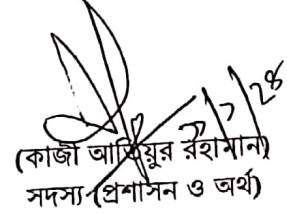 (কাজী আতিয়ুর রহমান)
সদস্য (প্রশাসন ও অর্থ)